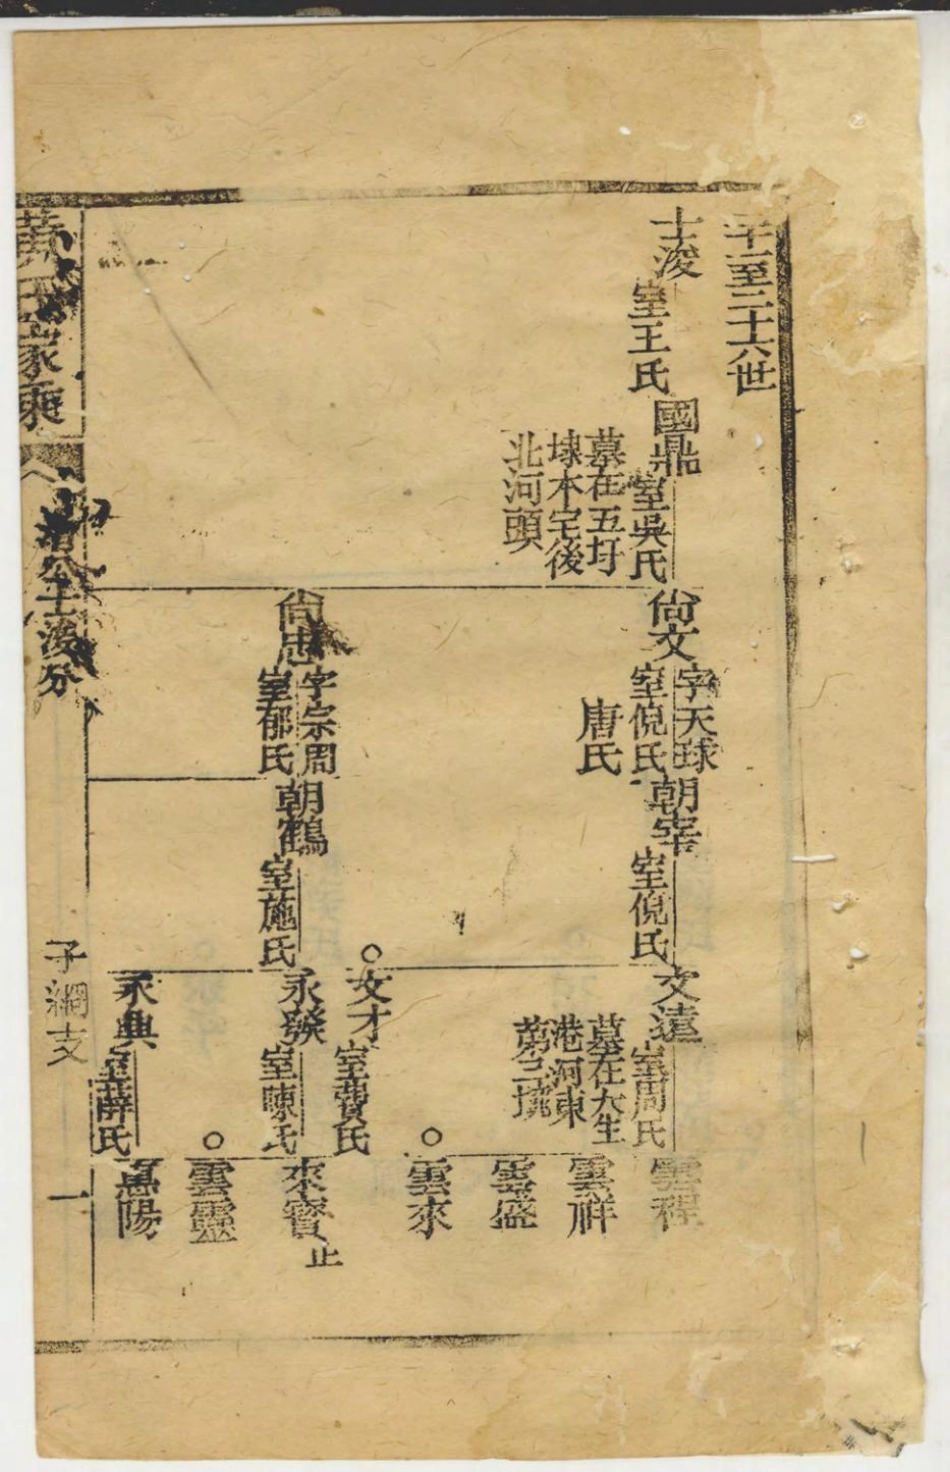 二十一至二十六世
士浚
室王氏
國鼎
室吳氏
墓在五圩
埭本宅後
北河頭
尙文
字天球
室倪氏
唐氏
朝宰
室倪氏
文遠
室周氏
墓在大生
港河東
雲程
雲祥
雲盛
文才
室費氏
雲來
尙忠
字宗周
室郁氏
朝鶴
室施氏
永發
室陳氏
來寳
止
雲靈
永興
室薛氏
禺陽
黃氏家乘
公士浚分
子綱支
一